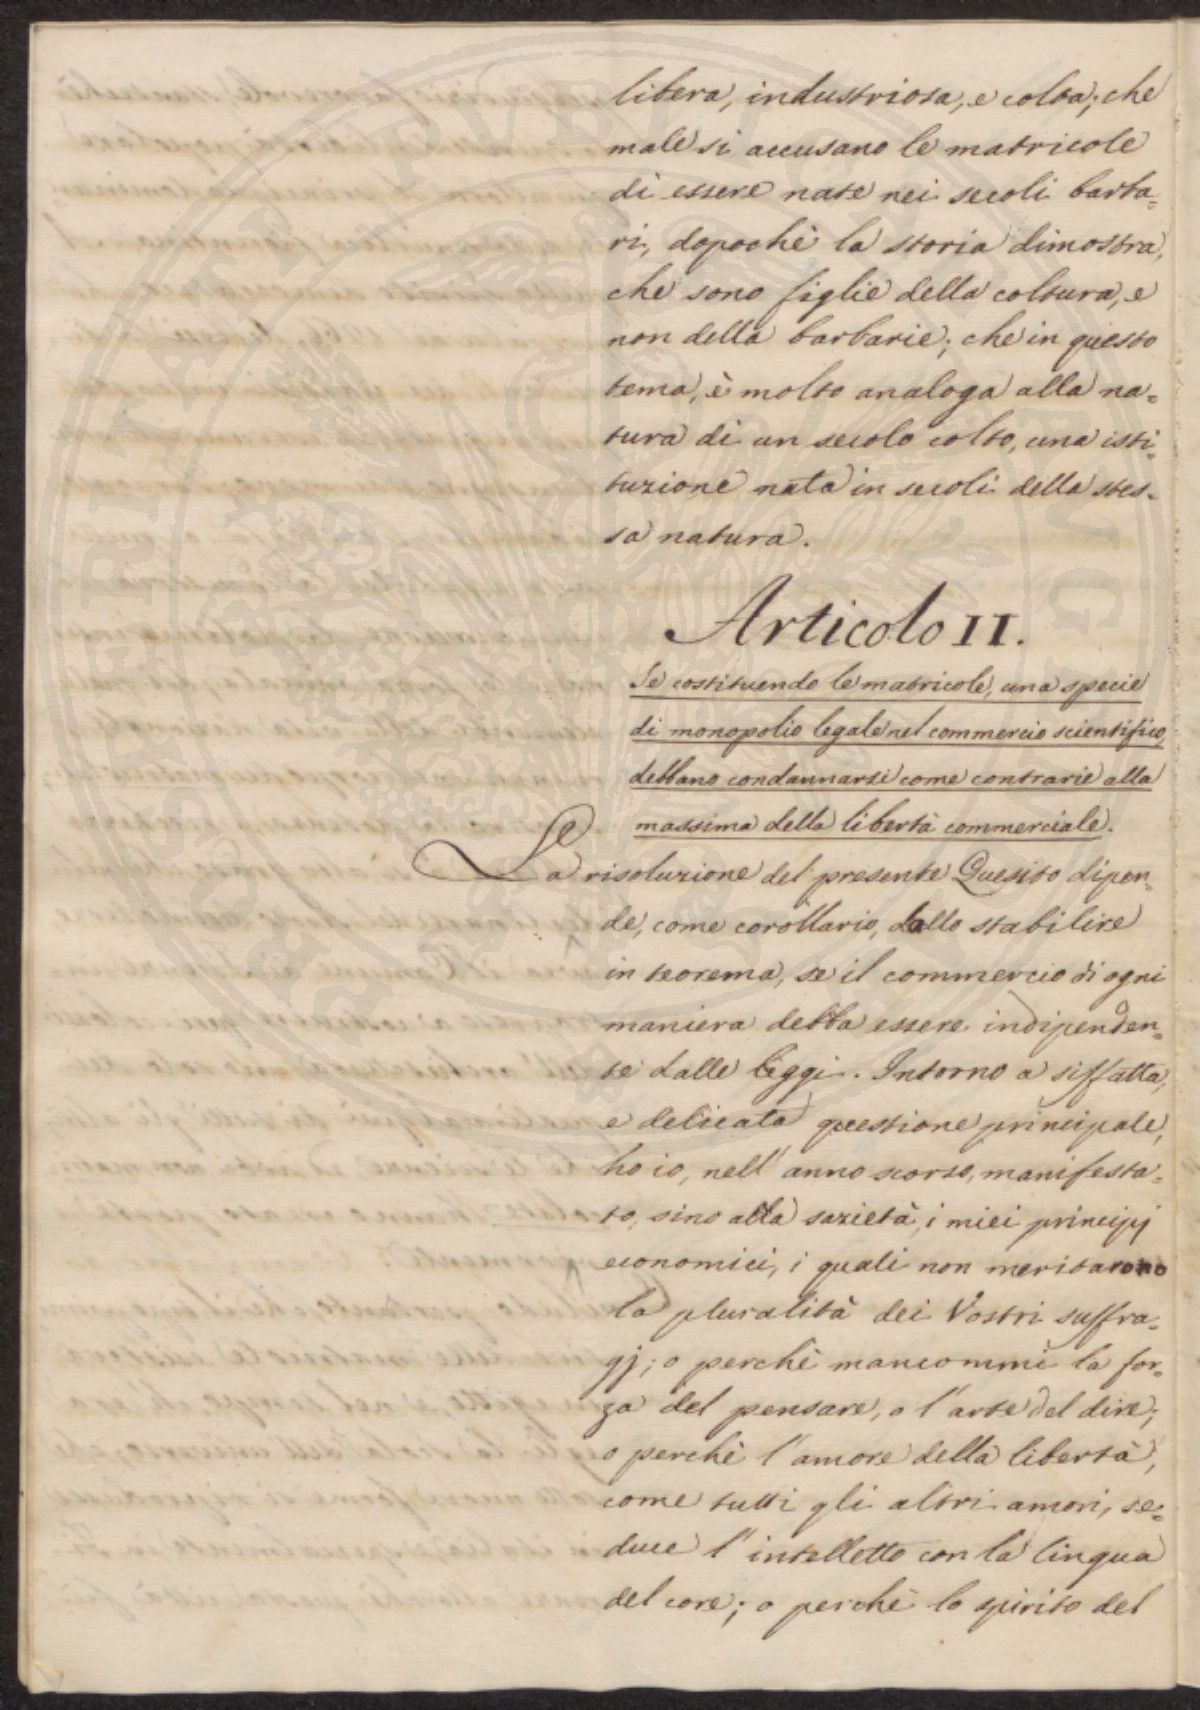 libera, industriosa, e colta; che
male si accusano le matricole
di essere nate nei secoli barba=
ri, dopochè la storia dimostra,
che sono figlie della coltura, e
non della barbarie; che in questo
tema, è molto analoga alla na=
tura di un secolo colto, una isti=
tuzione nata in secoli della stes=
sa natura.
Articolo II.
Se costituendo le matricole, una specie
di monopolio legale nel commercio scientifico,
debbano condannarsi come contrarie alla
massima della libertà commerciale.
La risoluzione del presente Quesito dipen=
de, come corollario, dallo stabilire
in teorema, se il commercio di ogni
maniera debba essere indipenden=
te dalle leggi. Intorno a siffatta,
e delicata questione principale,
ho io, nell' anno scorso, manifesta=
to, sino alla sazietà, i miei principj
economici, i quali non meritarono
la pluralità dei Vostri suffra=
gj; o perchè mancommi la for=
za del pensare, o l'arte del dire;
o perchè l'amore della libertà,
come tutti gli altri amori, se=
duce l'intelletto con la lingua
del core; o perchè lo spirito del